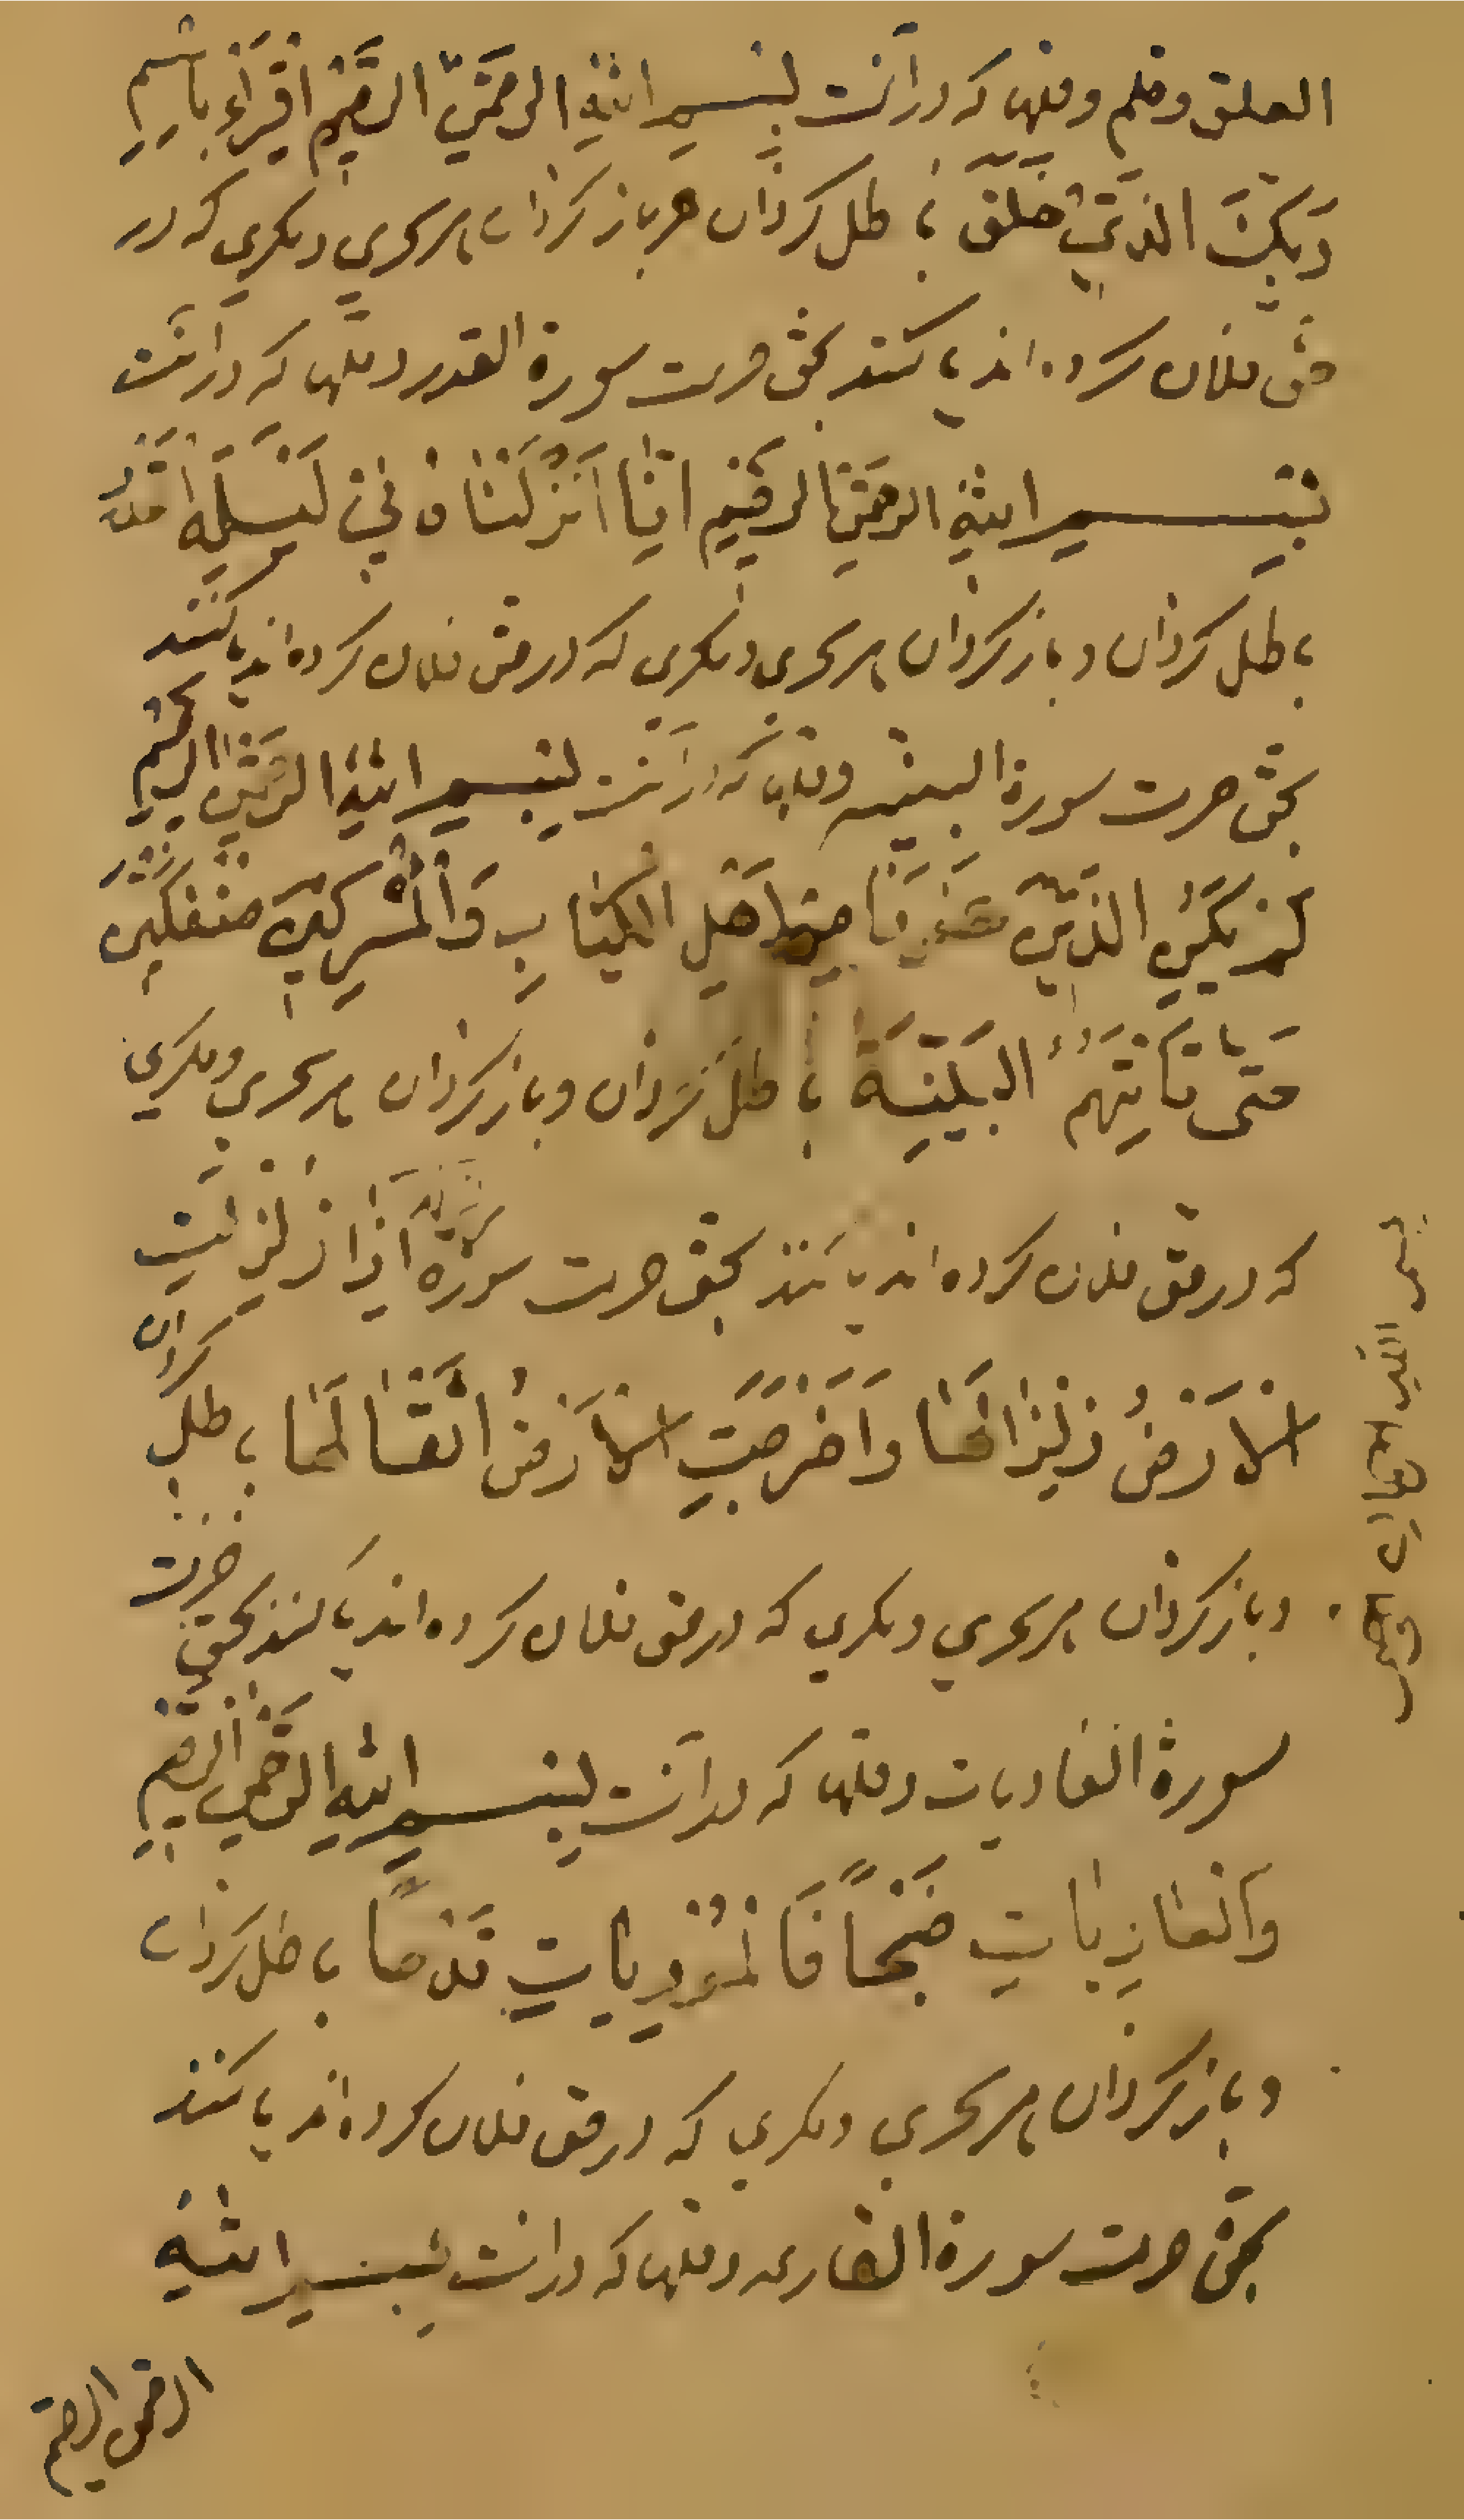 العلق و قلم و قلها که در آنت بسم الله الرحمن الرحیم اقراء باسم
ربک الذی خلق باطل کردان و باز کردان هر سحری و مکری که در
حق فلان کرده اند یا کنند بحق حرمت سورة القدر و قلها که در آنت
بسم الله الرحمن الرحیم انا انزلناه فی لیلة القدر
باطل کردان و باز کردان هر سحری و مکری که در حق فلان کرده اند یا کنند
بحق حرمت سورة البینه و قلها که در آنت بسم الله الرحمن الرحیم
لم یکن الذین کفروا من اهل الکتاب والمشرکین منفکین
حتی تاتیهم البینة باطل کردان و باز کردان هر سحری و مکری
که در حق فلان کرده اند یا کنند بحق حرمت سورة اذا زلزلت
الارض زلزالها و اخرجت الارض اثقالها باطل کردان
و باز کردان هر سحری و مکری که در حق فلان کرده اند یا کنند بحق حرمت
سورة العادیات و قلها که در آنت بسم الله الرحمن الرحیم
والعادیات ضبحاً فالموریات قدحا باطل کردان
و باز کردان هر سحری و مکری که در حق فلان کرده اند یا کنند
بحق حرمت سورة القارعه و قلها که در آنت بسم الله
الرحمن الرحیم
بسم الله الرحمن الرحیم